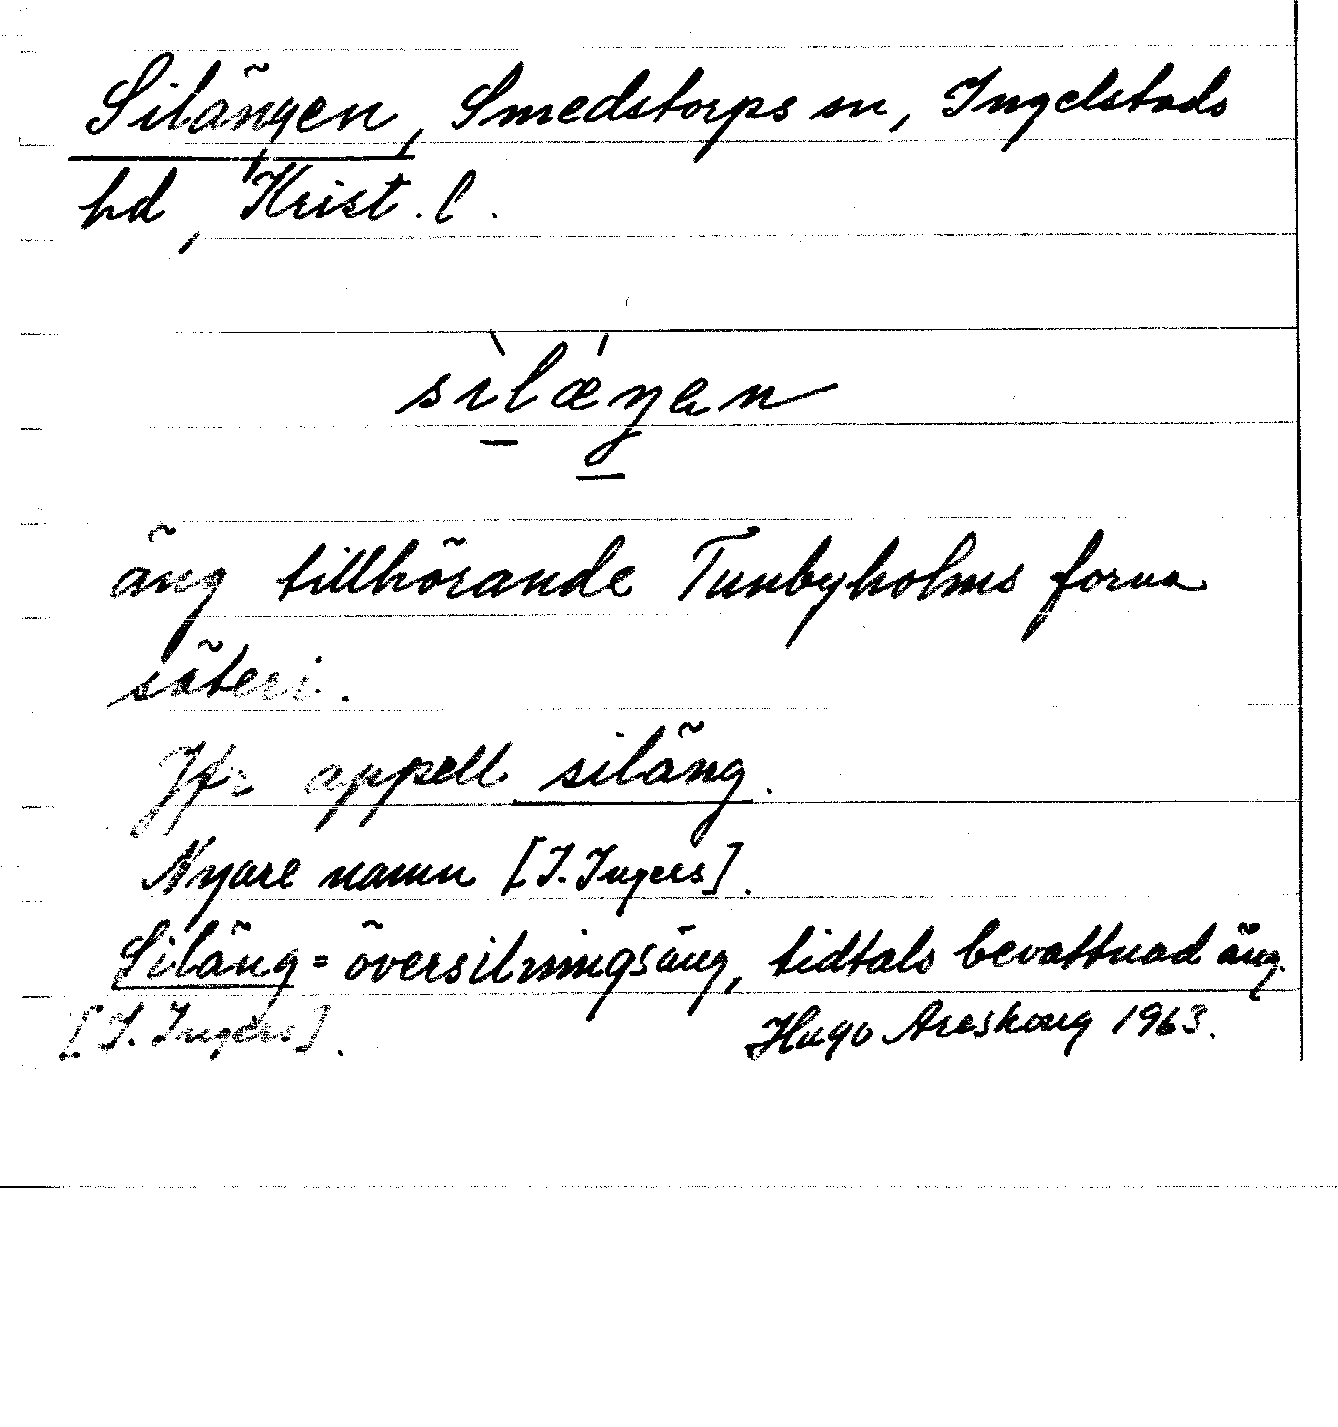 Silängen, Smedstorps sn, Ingelstads
hd, Krist. l.
sìlǽŋən
äng tillhörande Tunbyholms forna
säteri.
Jfr appell. siläng.
Nyare namn [I. Ingers].
Siläng = översilningsäng, tidtals bevattnad äng.
[I. Ingers].
Hugo Areskoug 1963.